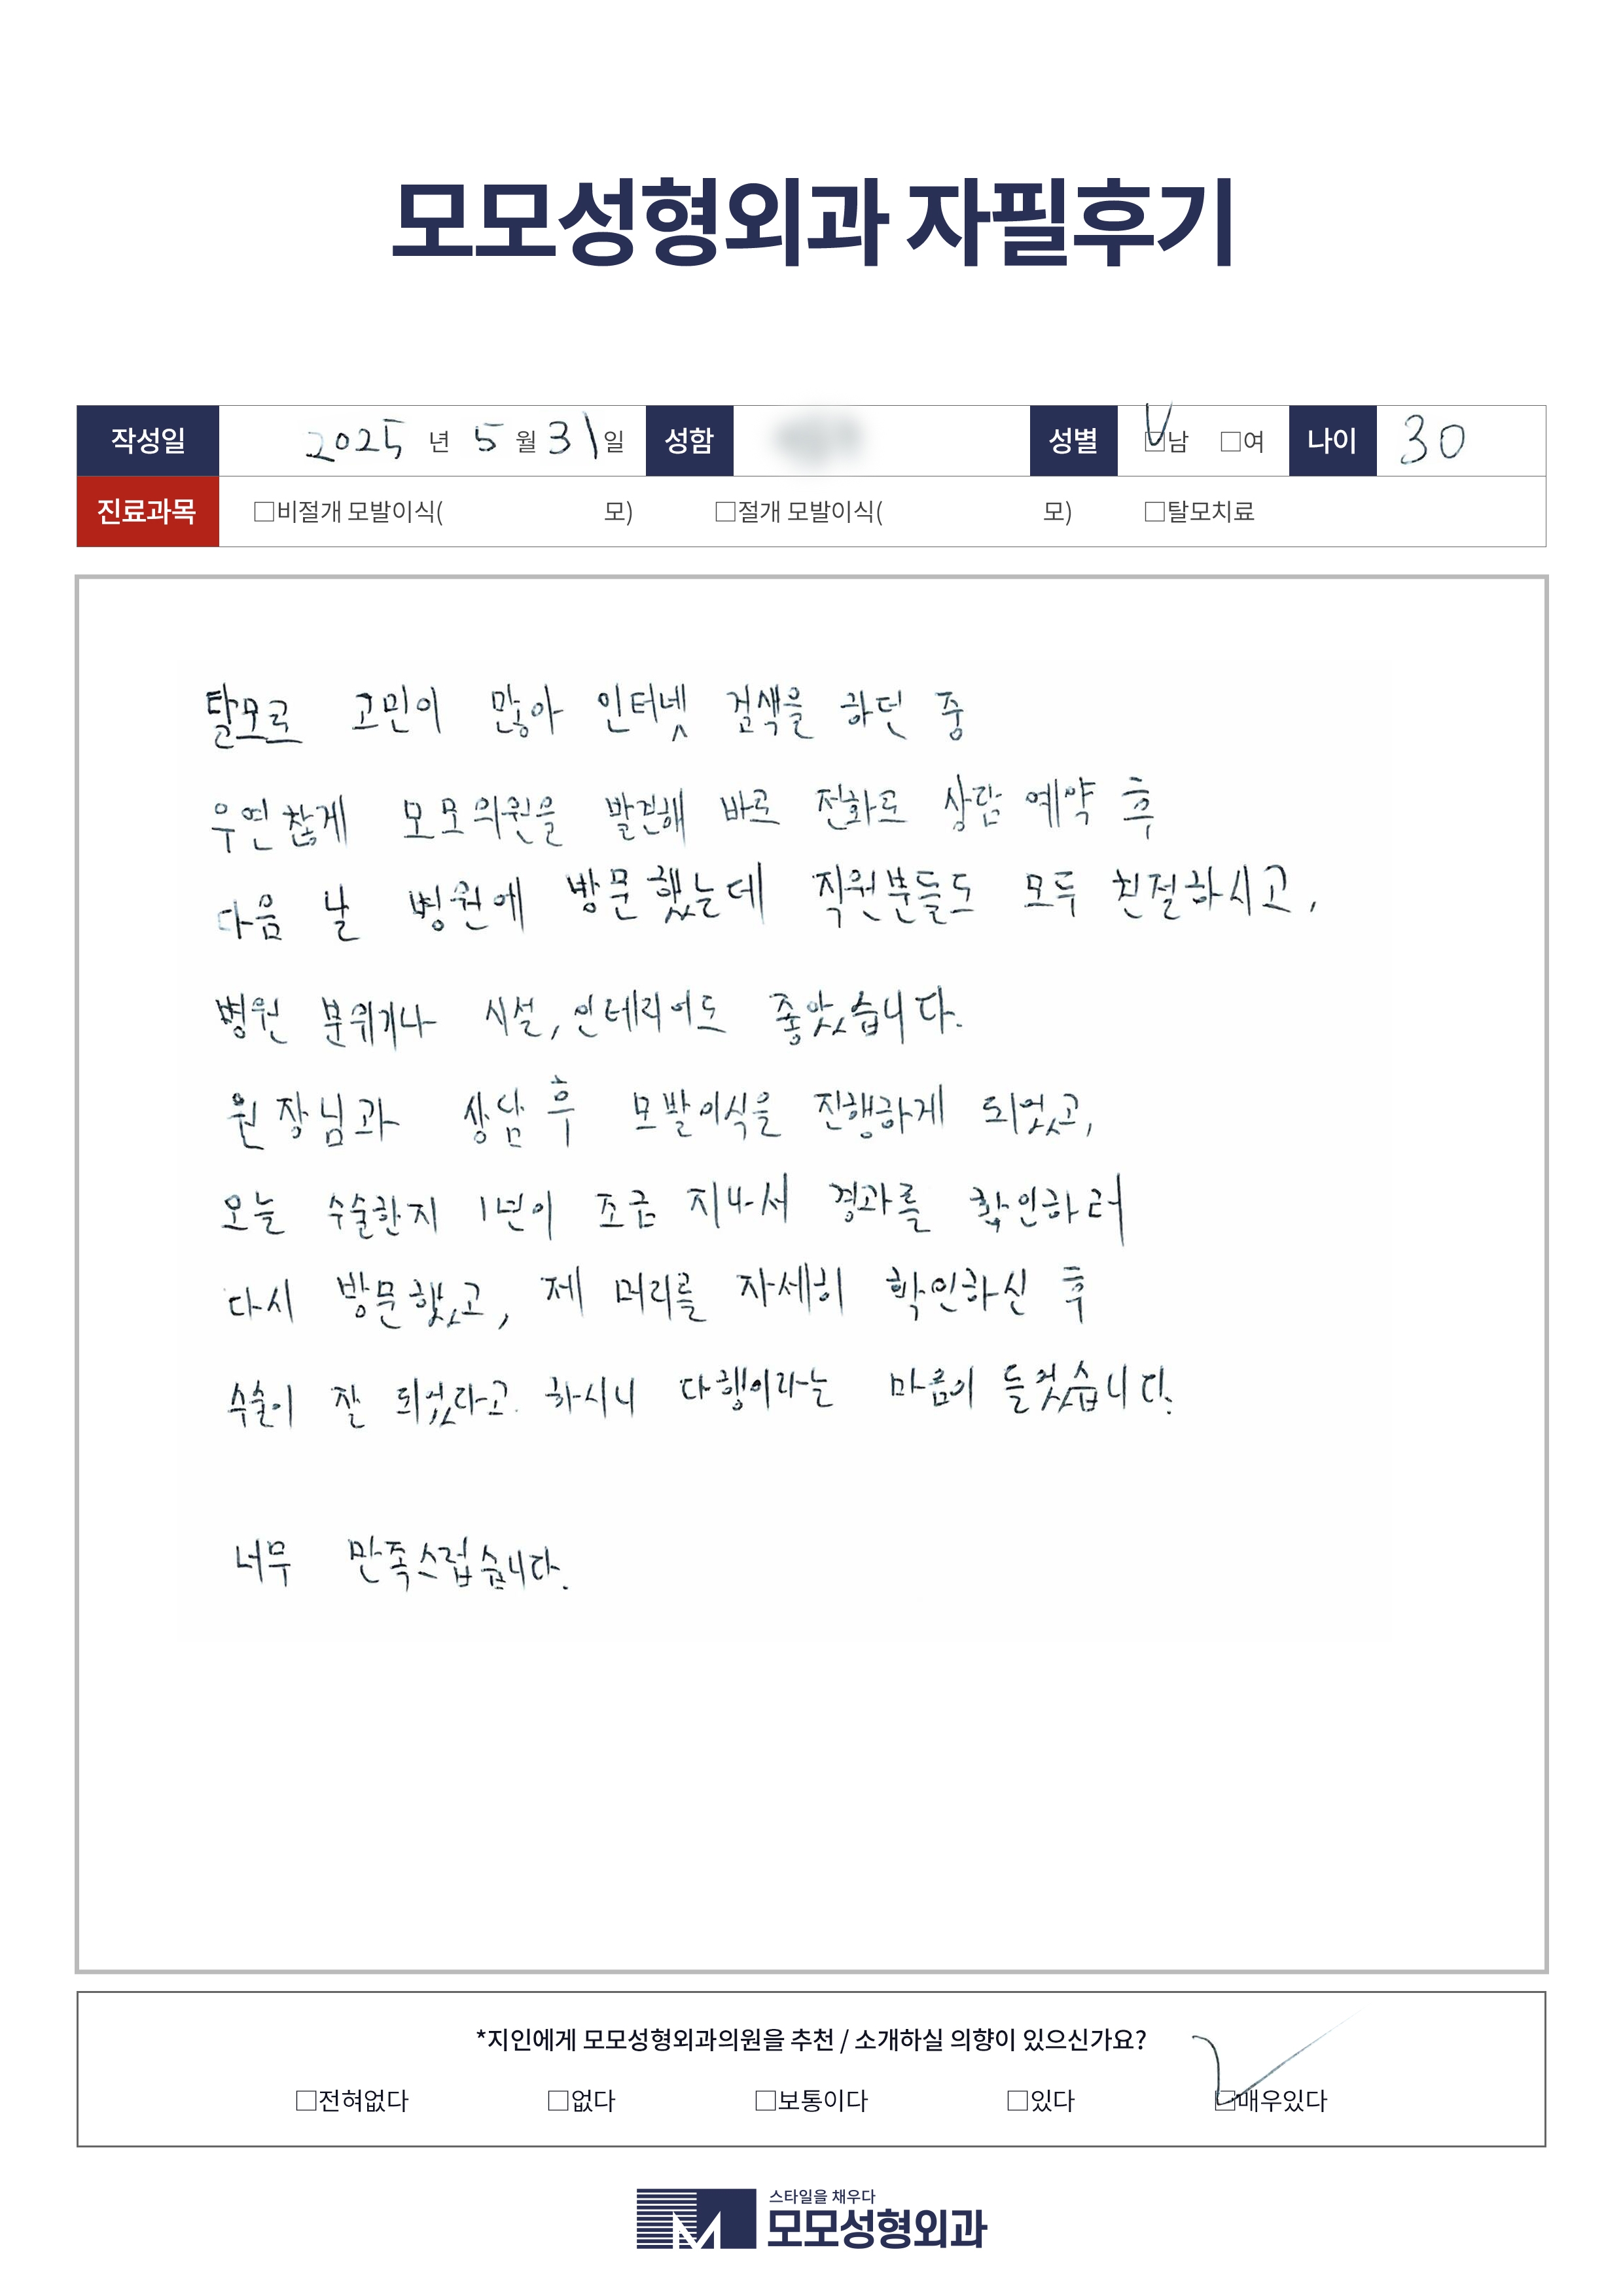 모모성형외과 자필후기
작성일 2025 년 5 월 31 일 성함 성별 □남 □여 나이 30
진료과목 □비절개 모발이식( 모) □절개 모발이식( 모) □탈모치료
탈모로 고민이 많아 인터넷 검색을 하던 중
우연찮게 모모의원을 발견해 바로 전화로 상담 예약 후
다음 날 병원에 방문했는데 직원분들도 모두 친절하시고,
병원 분위기나 시설, 인테리어도 좋았습니다.
원장님과 상담 후 모발이식을 진행하게 되었고,
오늘 수술한지 1년이 조금 지나서 경과를 확인하러
다시 방문했고, 제 머리를 자세히 확인하신 후
수술이 잘 되었다고 하시니 다행이라는 마음이 들었습니다.
너무 만족스럽습니다.
*지인에게 모모성형외과의원을 추천 / 소개하실 의향이 있으신가요?
□전혀없다 □없다 □보통이다 □있다 □매우있다
스타일을 채우다
모모성형외과